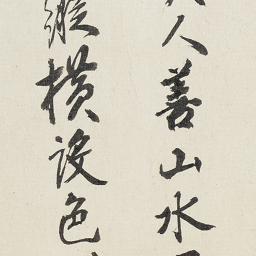 人善山水
縱橫設色